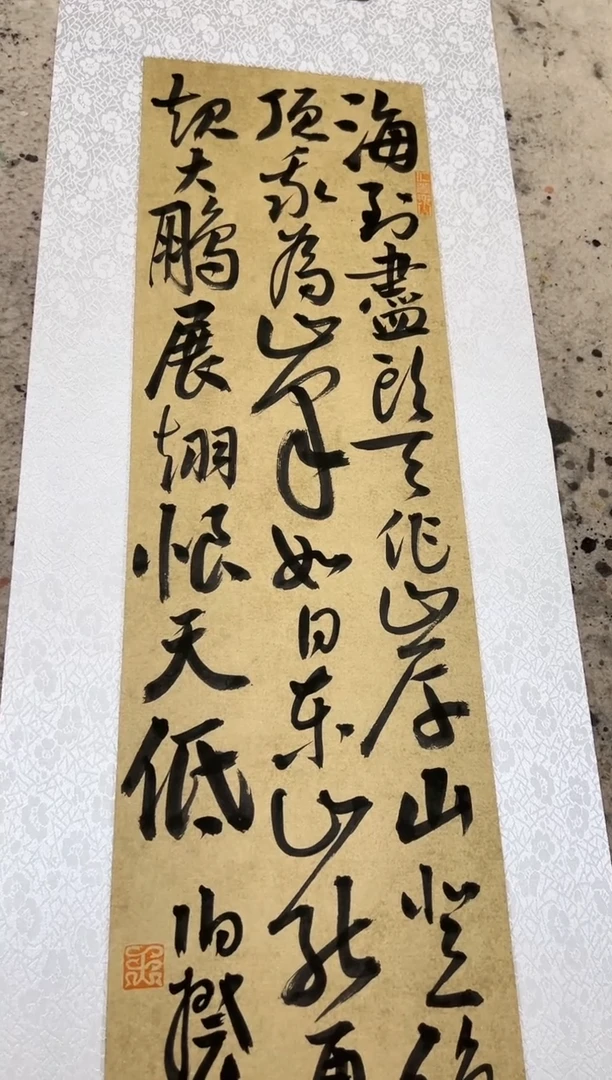 海到盡頭天作岸山登絕
頂我為峰如日東山能再
起大鵬展翅恨天低